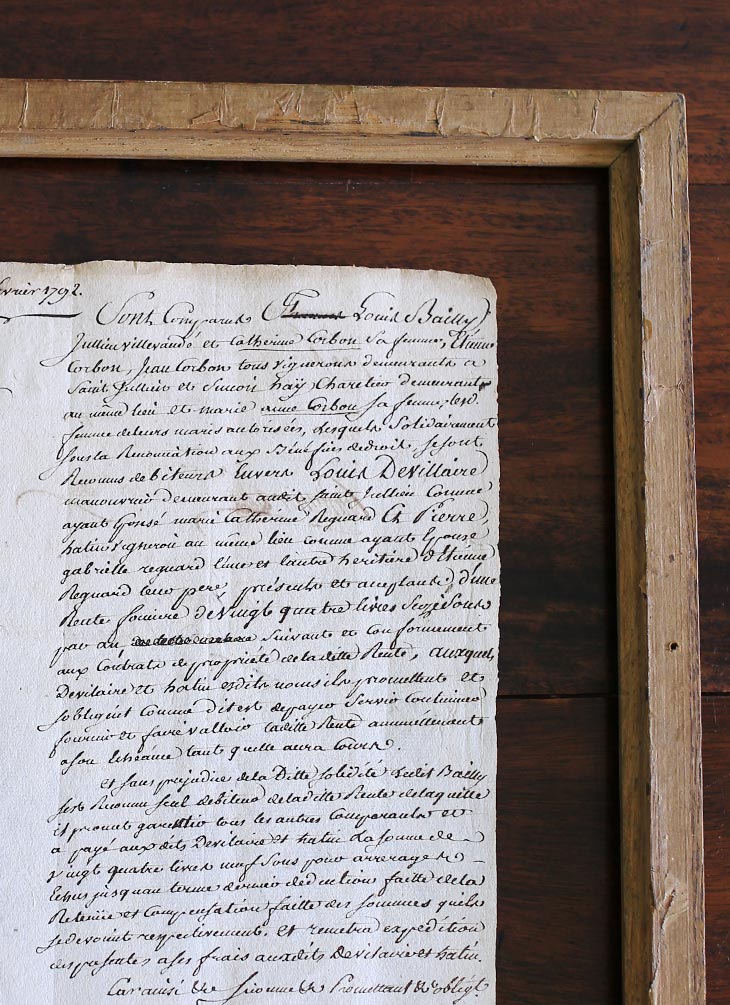 évrier 1792.
Sont Comparus Louis Bailly
Jullien villevaudé et Catherine Corbon Sa femme, Etienne
Corbon, Jean Corbon tous vignerons demeurants a
Saint Jullien et Simon hay Charetier demeurant
au même lieu et marie anne Corbon Sa femme, les
femme de leurs maris autorisées, Lesquels Solidairement
sous la Renonciation aux Bénéfices de droit, se sont
Reconnus debiteurs Envers Louis Devillaire
manouvrier demeurant audit Saint Jullien Comme
ayant Epousé marie Catherine Regnard Et Pierre
hatin vigneron au même lieu comme ayant Epousé
gabrielle regnard L'une et L'autre heritière d'Etienne
Regnard leur pere, présents et acceptants d'une
Rente fonciere de vingt quatre livres Seize Sous
par an Suivante et Conformement
aux Contrats de propriété de la ditte Rente, auxquels
Devilaire et hatin esdits noms ils promettent et
s'obligent Comme dit est de payer Servir Continuer
fournir et faire valloir laditte Rente annuellement
a son Echéance tant quelle aura Cours.
et sans prejudice de la Ditte solidité Ledit Bailly
s'est Reconnu seul debiteur de laditte Rente de laquelle
il promet garentir tous les autres Comparants et
a payé auxdits Devilaire et hatin La somme de
vingt quatre livres neuf Sous pour arrerages
Echus jusquau terme dernier déduction faitte de la
Retenüe et Compensation faitte des sommes quils
se devoint respectivement. et remetra expédition
des presentes a ses frais auxdits Devilaire et hatin.
Car ainsi &c Promettant &c obligt.